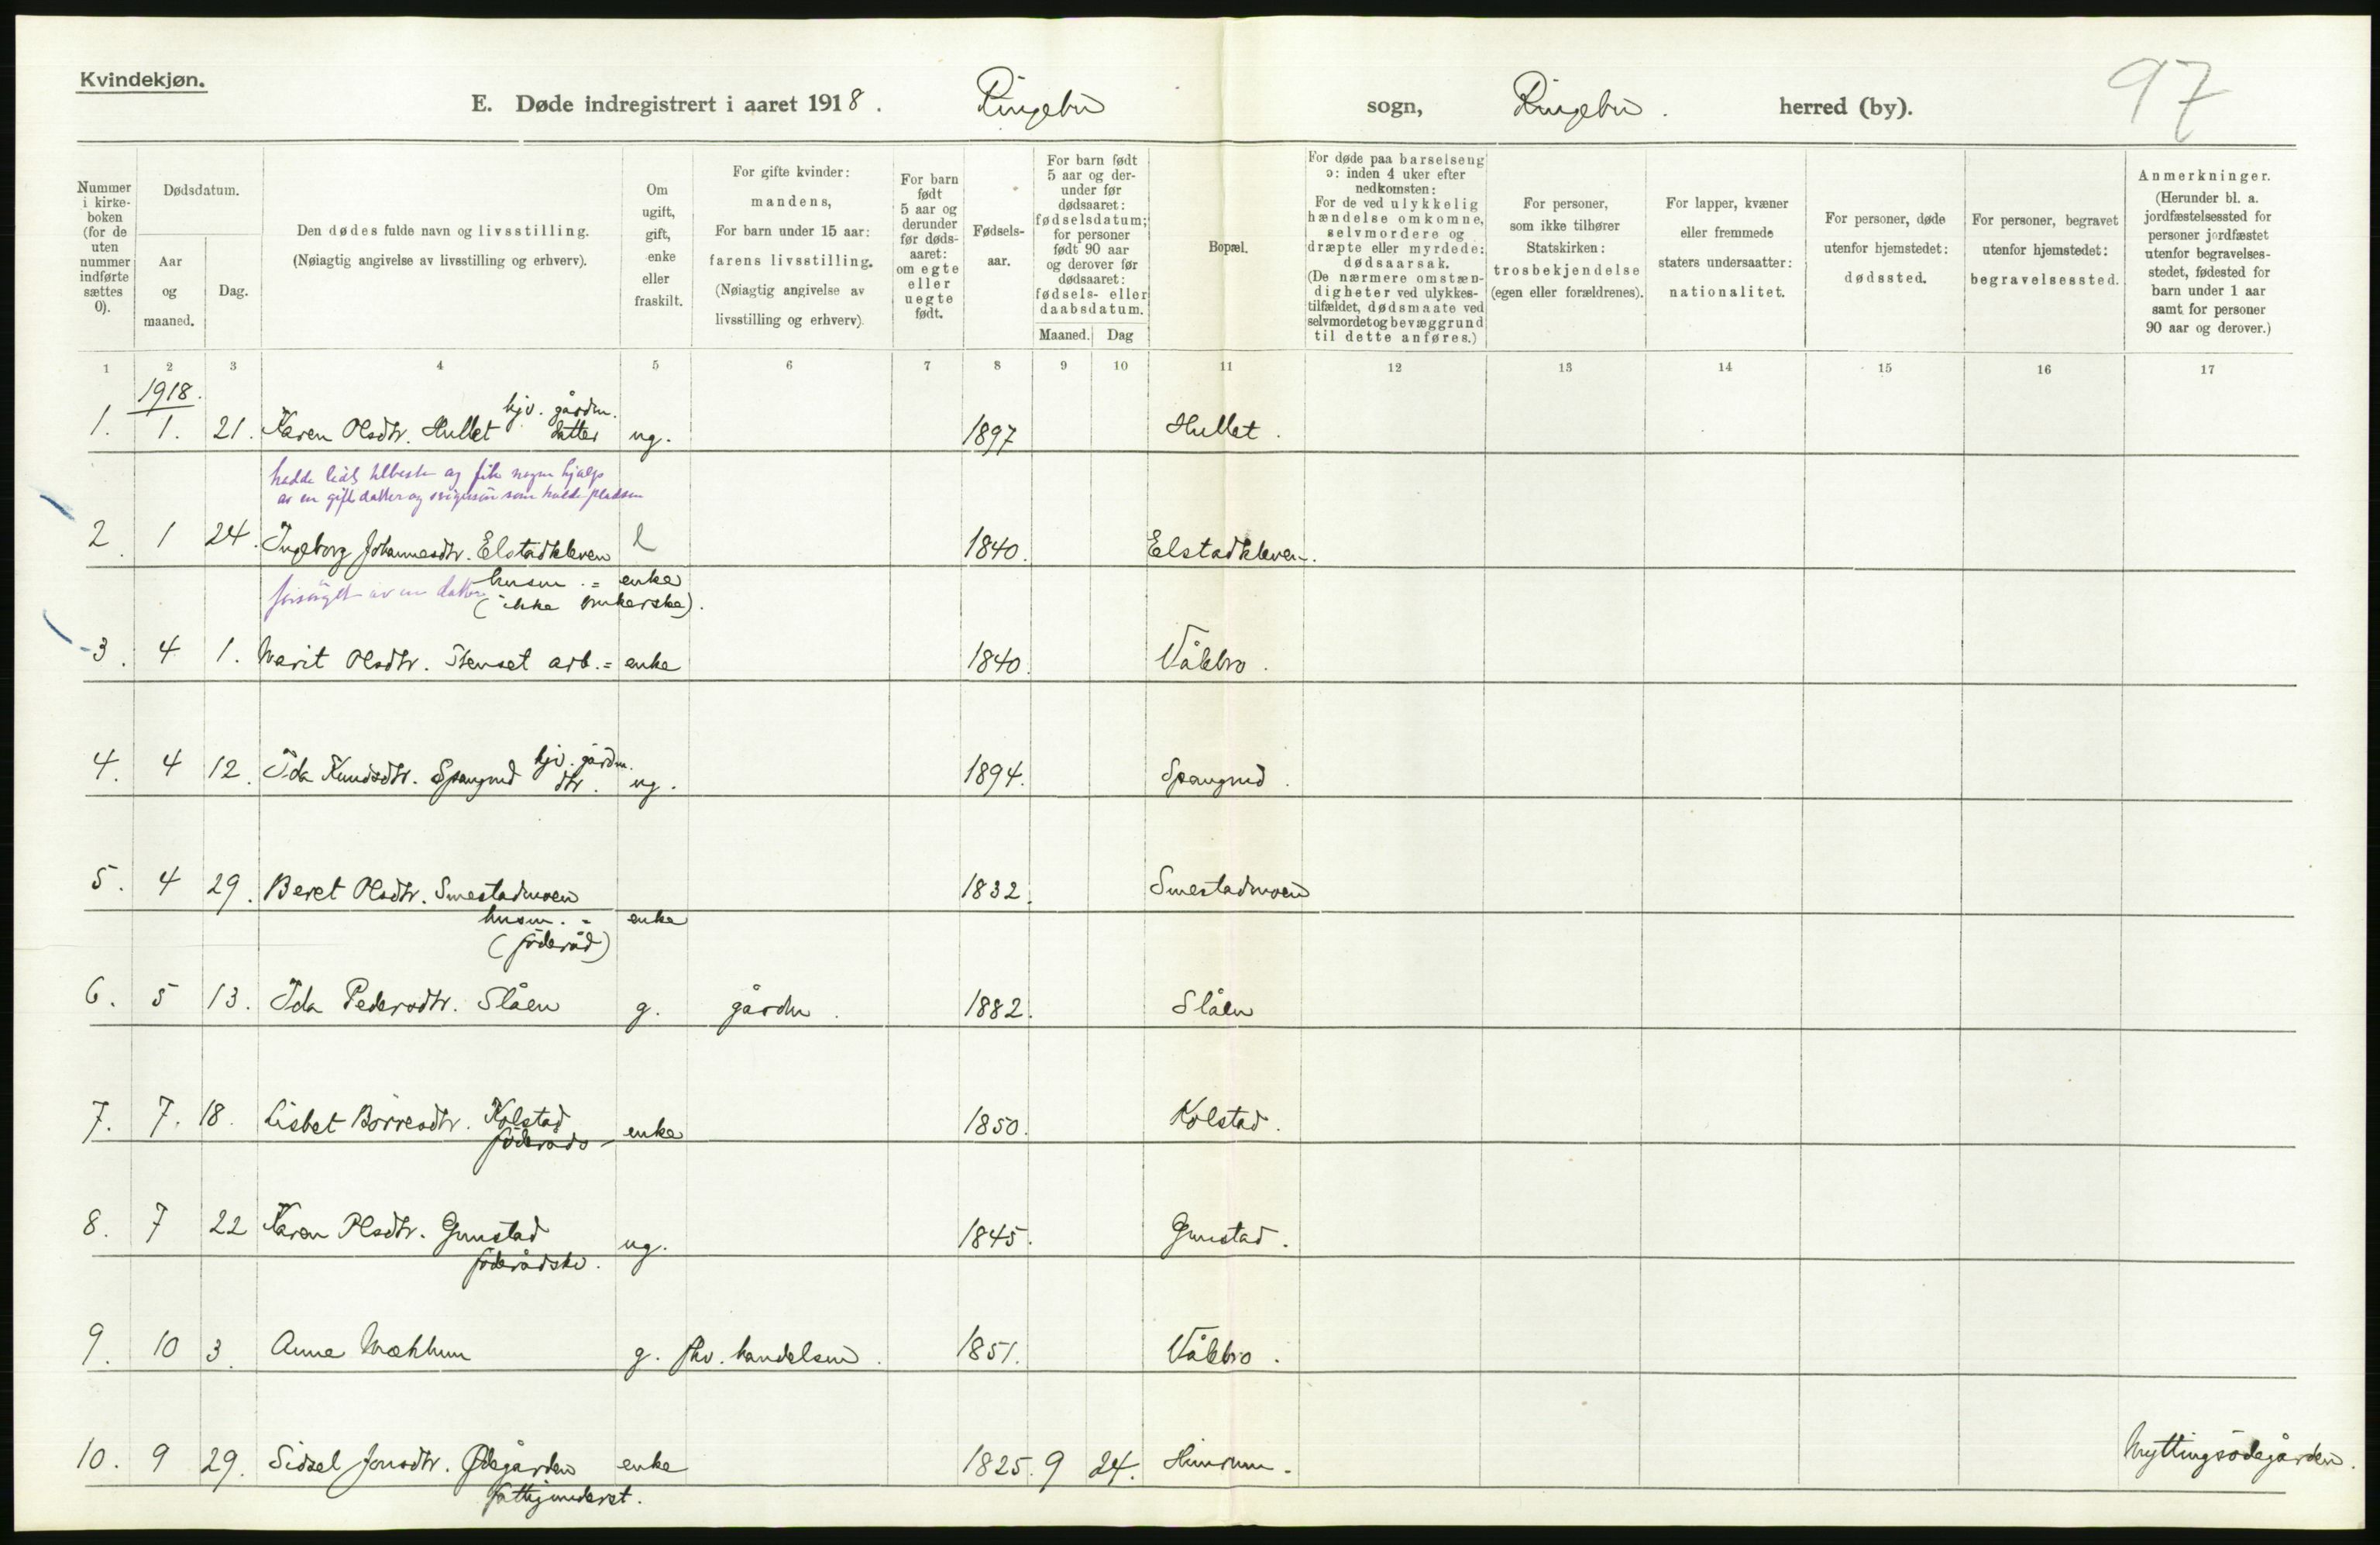 Kvindekjøn.
E. Døde indregistrert i aaret 1918. Ringebu sogn, Ringebu. herred (by). 97
Nummer i kirkeboken (for de uten nummer indførte sættes 0).
Dødsdatum.
Aar og maaned.
Dag.
Den dødes fulde navn og livsstilling.
(Nøiagtig angivelse av livsstilling og erhverv).
Om ugift, gift, enke eller fraskilt.
For gifte kvinder: mandens,
For barn under 15 aar: farens livsstilling.
(Nøiagtig angivelse av livsstilling og erhverv).
For barn født 5 aar og derunder før dødsaaret: om egte eller uegte født.
Fødselsaar.
For barn født 5 aar og derunder før dødsaaret: fødselsdatum; for personer født 90 aar og derover før dødsaaret: fødsels- eller daabsdatum.
Maaned. Dag
Bopæl.
For døde paa barselseng ɔ: inden 4 uker efter nedkomsten:
For de ved ulykkelig hændelse omkomne, selvmordere og dræpte eller myrdede: dødsaarsak.
(De nærmere omstændigheter ved ulykkestilfældet, dødsmaate ved selvmordet og bevæggrund til dette anføres.)
For personer, som ikke tilhører Statskirken: trosbekjendelse (egen eller forældrenes).
For lapper, kvæner eller fremmede staters undersaatter: nationalitet.
For personer, døde utenfor hjemstedet: dødssted.
For personer, begravet utenfor hjemstedet: begravelsessted.
Anmerkninger.
(Herunder bl. a. jordfæstelsessted for personer jordfæstet utenfor begravelsesstedet, fødested for barn under 1 aar samt for personer 90 aar og derover.)
1 2 3 4 5 6 7 8 9 10 11 12 13 14 15 16 17
1918.
hjv. gårdm.
1. 1. 21. Karen Olsdtr. Hullet datter ug. 1897 Hullet.
hadde litt og fik nogen hjælp
av en gift datter og svigersøn som hadde pladsen
2. 1 24. Ingeborg Johannesdtr. Elstadkleven 1840. Elstadkleven.
husm. = enke
forsørget av en datter (ikke brukerske).
3. 4 1. Marit Olsdtr. Stenset arb. = enke 1840. Vålebro.
hjv. gårdm.
4. 4 12. Ida Knudsdtr. Spangrud dtr. ug. 1894. Spangrud.
5. 4 29. Beret Olsdtr. Smestadmoen 1832. Smestadmoen
husm. = enke
(föderåd)
6. 5 13. Ida Pedersdtr. Slåen g. gårdm. 1882. Slåen
7. 7. 18. Lisbet Börresdtr. Kolstad 1850. Kolstad.
föderåds- enke
8. 7 22 Karen Olsdtr. Gunstad ug. 1845. Gunstad.
föderådskv.
9. 10 3. Anne Mæhlum g. fhv. handelsm. 1851. Vålebro.
10. 9 29. Sidsel Jonsdtr. Ødegården enke 1825. 9 24. Himrum. Myttingsödegården.
fattigunderst.